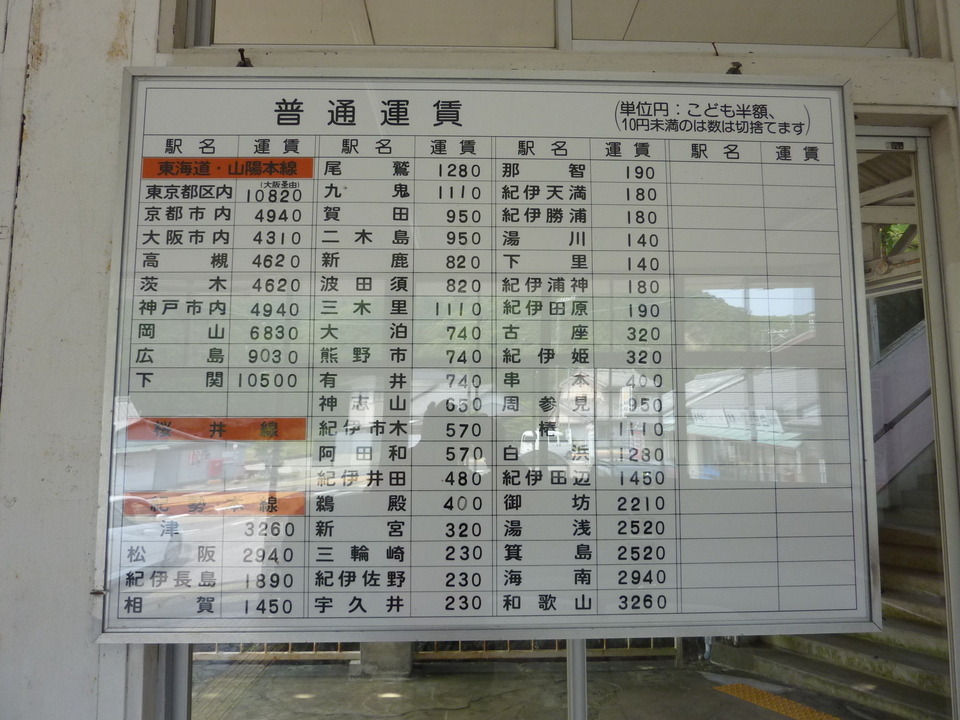 普通運賃
(単位円：こども半額、
10円未満のは数は切捨てます)
駅名 運賃 駅名 運賃 駅名 運賃 駅名 運賃
東海道・山陽本線 尾鷲 1280 那智 190
(大阪経由)
東京都区内 10820 九鬼 1110 紀伊天満 180
京都市内 4940 賀田 950 紀伊勝浦 180
大阪市内 4310 二木島 950 湯川 140
高槻 4620 新鹿 820 下里 140
茨木 4620 波田須 820 紀伊浦神 180
神戸市内 4940 三木里 1110 紀伊田原 190
岡山 6830 大泊 740 古座 320
広島 9030 熊野市 740 紀伊姫 320
下関 10500 有井 740 串本 400
神志山 650 周参見 950
桜井線 紀伊市木 570 椿 1110
阿田和 570 白浜 1280
紀伊井田 480 紀伊田辺 1450
紀勢本線 鵜殿 400 御坊 2210
津 3260 新宮 320 湯浅 2520
松阪 2940 三輪崎 230 箕島 2520
紀伊長島 1890 紀伊佐野 230 海南 2940
相賀 1450 宇久井 230 和歌山 3260